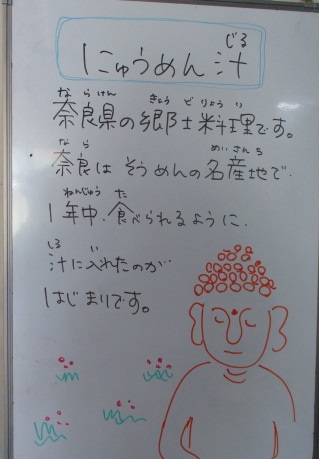 にゅうめん汁
じる
奈良県の郷土料理です。
ならけん きょうどりょうり
奈良はそうめんの名産地で、
なら めいさんち
1年中、食べられるように、
ねんじゅう た
汁に入れたのが
しる い
はじまりです。